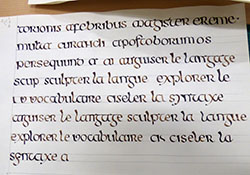 torionis afebribus magister ereme
muta curandi apostoborumos
persequind et ai aiguiser le langage
scup sculpter la langue explorer le
vocabulaire ciseler la syntaxe
aiguiser le langage sculpter la langue
explorer le vocabulaire ciseler la
syntaxe a